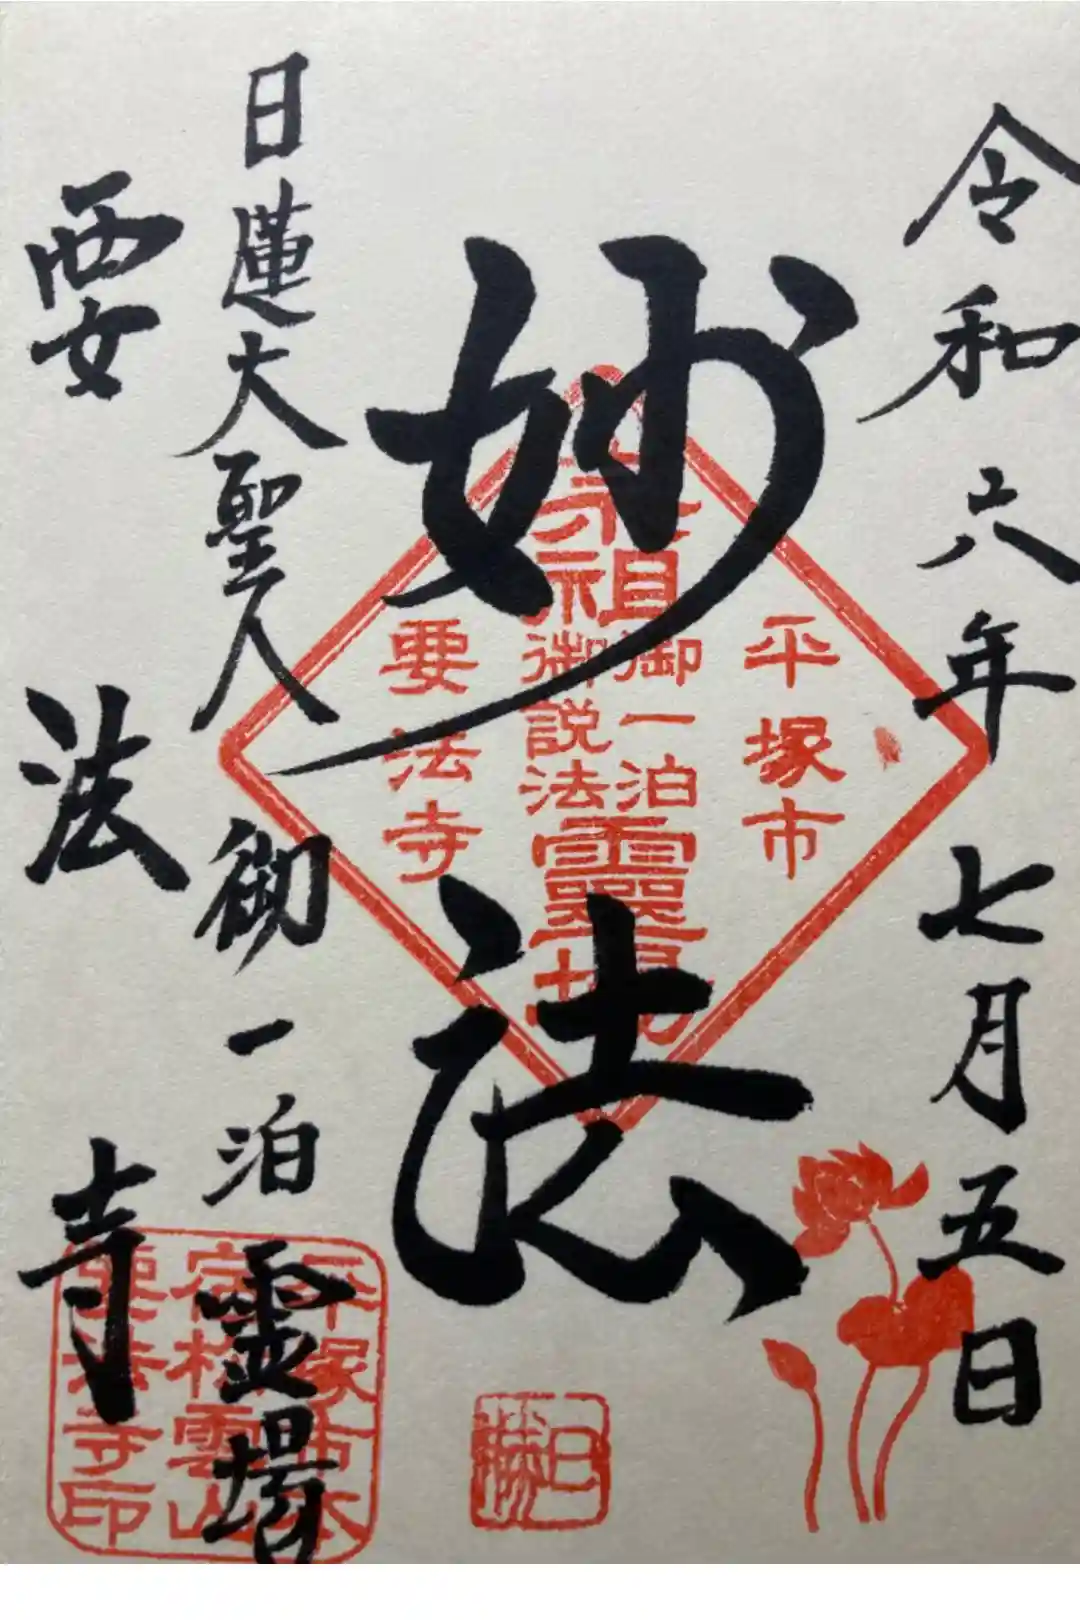 令和六年七月五日
妙法
日蓮大聖人御一泊霊場
要法寺
平塚市
宗祖
御一泊
御説法
靈場
要法寺
平塚市
松雲山
要法寺印